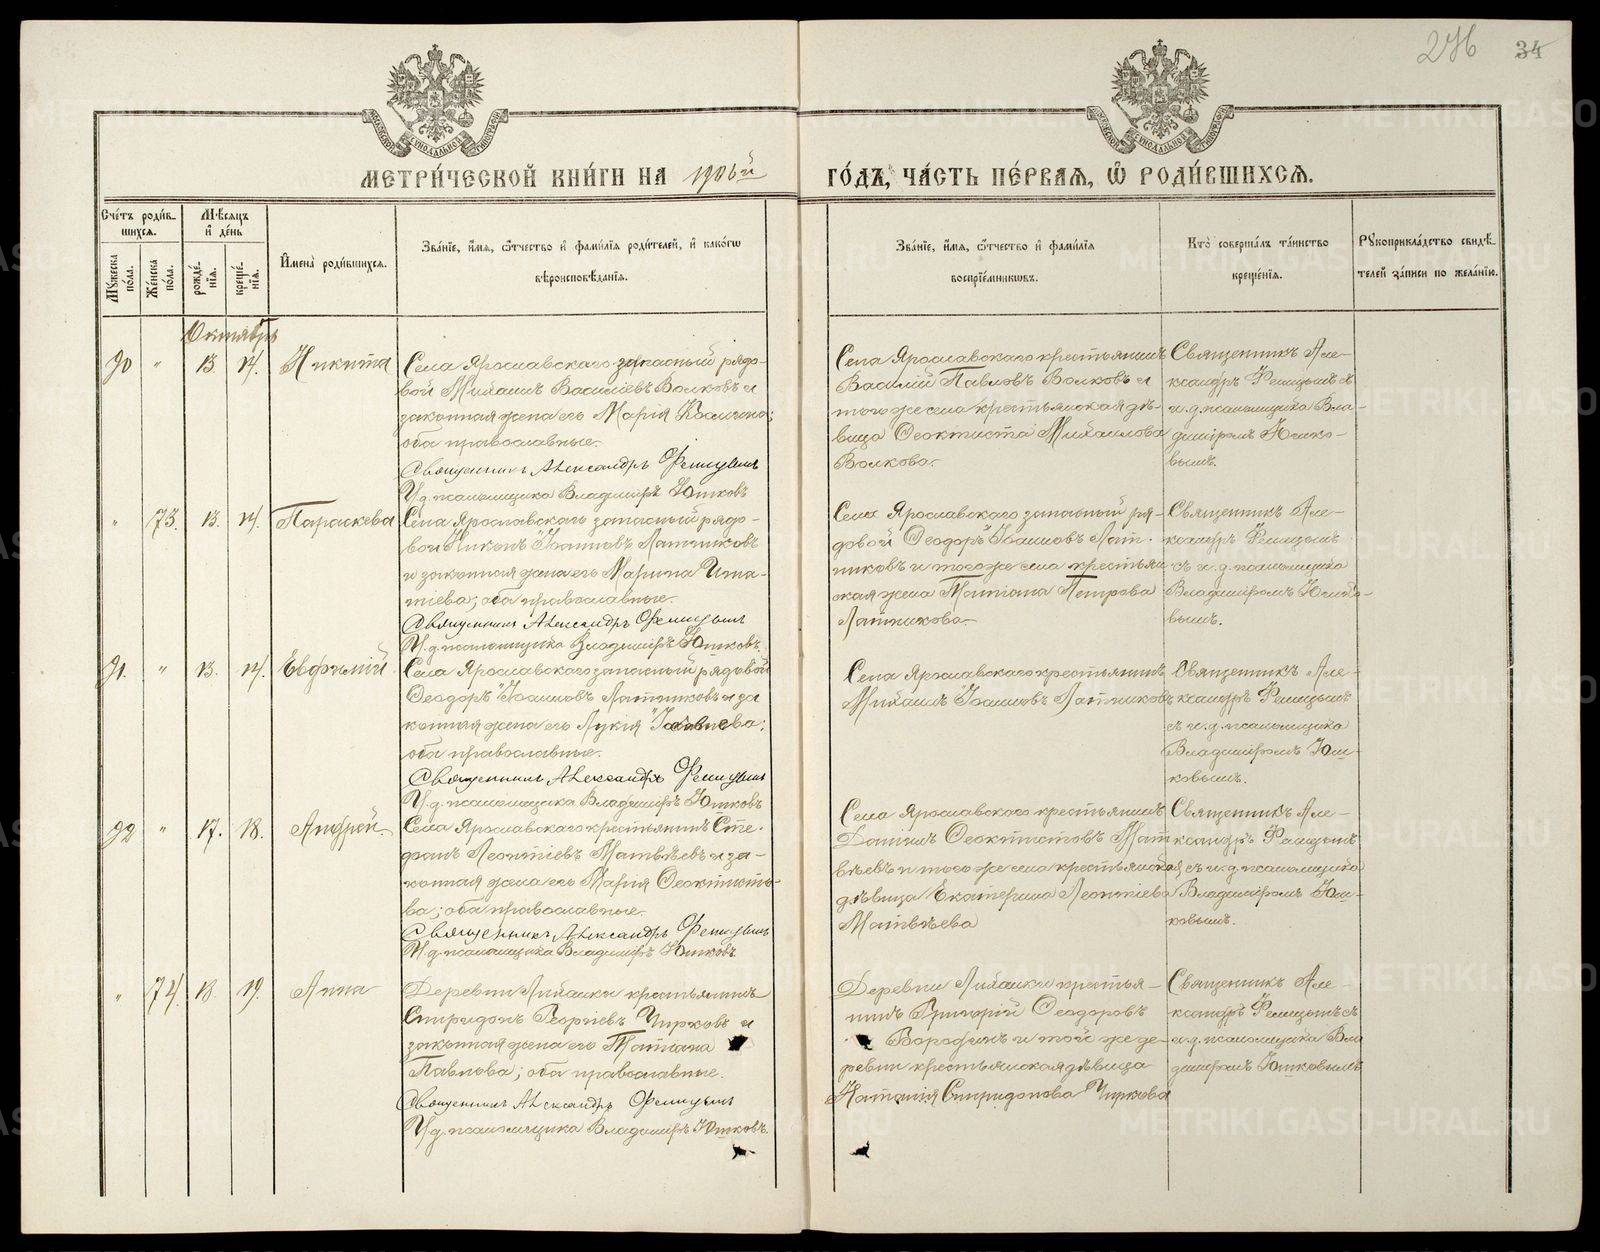 276 34
МЕТРИ́ЧЕСКОЙ КНИ́ГИ НА 1906й ГО́ДЪ, ЧА́СТЬ ПЕ́РВАЯ, Ѡ РОДИ́ВШИХСЯ.
Сче́тъ роди́в-
шихся.
Му́жеска по́ла.
Же́нска по́ла.
Мѣ́сяцъ
и де́нь
рожде́-
нія.
креще́-
нія.
И́мена роди́вшихся.
Зва́ніе, и́мя, ѻ́тчество и фами́лія роди́телей, и како́гѡ
вѣроисповѣ́данія.
Зва́ніе, и́мя, ѻ́тчество и фами́лія
воспріе́мникѡвъ.
Кто̀ соверша́лъ та́инство
креще́нія.
Рукоприкла́дство свидѣ́-
телей за́писи по жела́нію.
Октябрь
90 " 13. 14. Никита
Села Ярославскаго запасный рядо-
вой Михаилъ Василіевъ Волковъ и
законная жена его Марія
оба православные.
Священникъ Александръ
И. д. псаломщика Владимiръ Юшковъ
Села Ярославскаго крестьянинъ
Василій Павловъ Волковъ и
того же села крестьянская дѣ-
вица Ѳеоктиста Михаилова
Волкова.
Священникъ Але-
ксандръ съ
и. д. псаломщика Вла-
диміромъ Юшко-
вымъ.
" 73. 13. 14. Параскева
Села Ярославскаго запасный рядо-
вой Никонъ Іоанновъ Латниковъ
и законная жена его Марина Игна-
тіева; оба православные.
Священникъ Александръ
И. д. псаломщика Владиміръ Юшковъ.
Села Ярославскаго запасный ря-
довой Ѳеодоръ Іоанновъ Лат-
никовъ и того же села крестьян
ская жена Татіана Петрова
Латникова.
Священникъ Але-
ксандръ
съ и. д. псаломщика
Владиміромъ Юшко-
вымъ.
91. " 13. 14. Евфимій
Села Ярославскаго запасный рядовой
Ѳеодоръ Іоанновъ Латниковъ и за
конная жена его Лукія Іаковлева;
оба православные.
Священникъ Александръ
И. д. псаломщика Владиміръ Юшковъ
Села Ярославскаго крестьянинъ
Михаилъ Іоанновъ Латниковъ
Священникъ Але-
ксандръ
съ и. д. псаломщика
Владиміромъ Юш-
ковымъ.
92 " 17. 18. Андрей
Села Ярославскаго крестьянинъ Сте-
фанъ Леонтіевъ Матвѣевъ и за-
конная жена его Марія Ѳеоктисто-
ва; оба православные.
Священникъ Александръ
И. д. псаломщика Владиміръ Юшковъ.
Села Ярославскаго крестьянинъ
Даніилъ Ѳеоктистовъ Мат
вѣевъ и того же села крестьянская
дѣвица Екатерина Леонтіева
Матвѣева
Священникъ Але-
ксандръ
съ и. д. псаломщика
Владиміромъ Юш-
ковымъ.
" 74. 18. 19. Анна
Деревни крестьянинъ
Спиридонъ Георгіевъ Чирковъ и
законная жена его Татіана
Павлова; оба православные.
Священникъ Александръ
И. д. псаломщика Владиміръ Юшковъ.
Деревни крестья-
нинъ Григорій Ѳеодоровъ
Бородинъ и той же де-
ревни крестьянская дѣвица
Наталія Спиридонова Чиркова
Священникъ Але-
ксандръ съ
и. д. псаломщика Вла
диміромъ Юшковымъ
METRIKI.GASO-URAL.RU